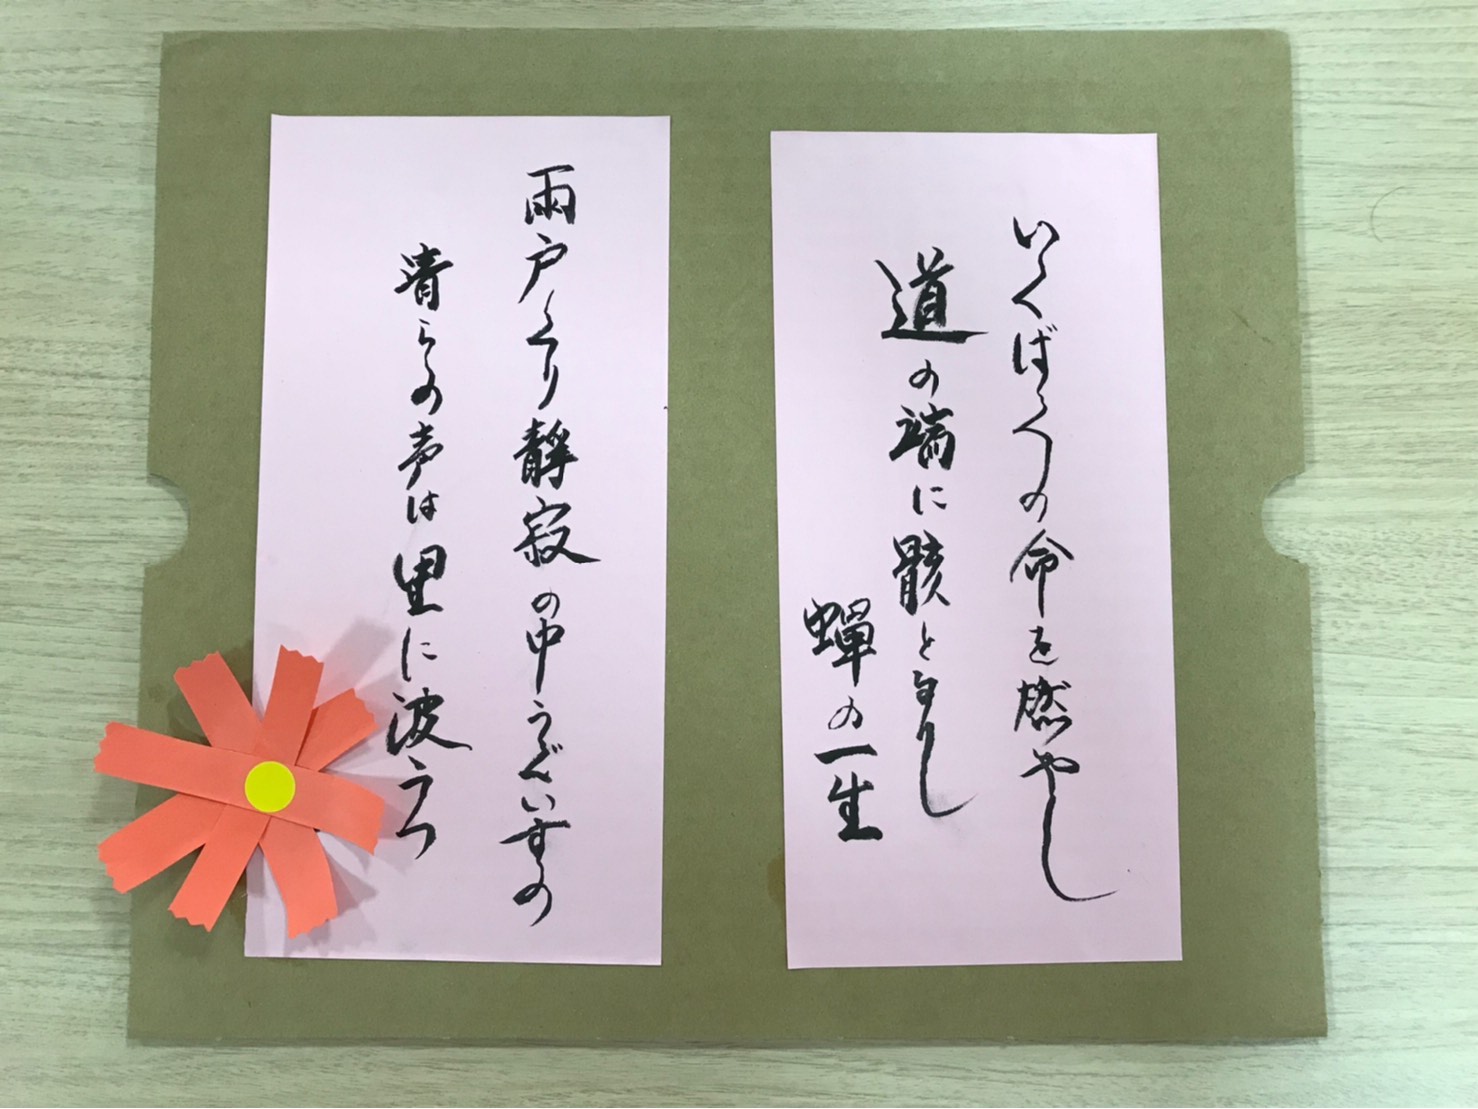 いくばくの命を燃やし
道の端に骸となりし
蟬の一生
雨戸くり静寂の中うぐいすの
清らの声は里に波うつ